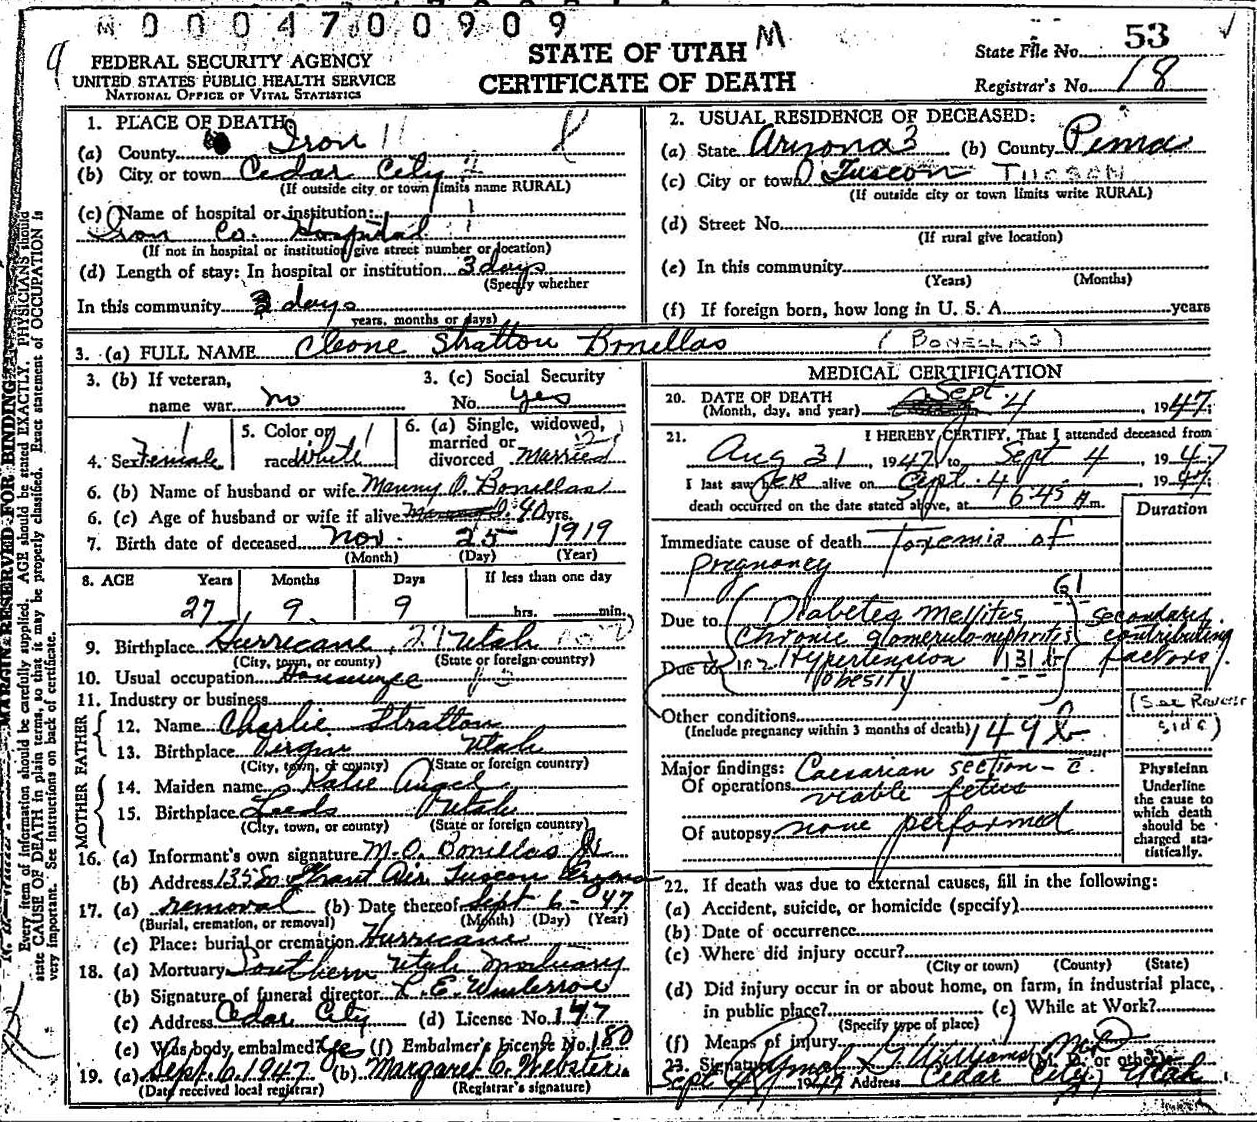 M 0 0 0 4 7 0 0 9 0 9
FEDERAL SECURITY AGENCY
UNITED STATES PUBLIC HEALTH SERVICE
NATIONAL OFFICE OF VITAL STATISTICS
STATE OF UTAH M
CERTIFICATE OF DEATH
State File No. 53
Registrar's No. 18
MARGIN RESERVED FOR BINDING
Every item of information should be carefully supplied. AGE should be stated EXACTLY. PHYSICIANS should
state CAUSE OF DEATH in plain terms, so that it may be properly classified. Exact statement of OCCUPATION is
very important. See instructions on back of certificate.
1. PLACE OF DEATH
(a) County Iron
(b) City or town Cedar City
(If outside city or town limits name RURAL)
(c) Name of hospital or institution:
Iron Co. Hospital
(If not in hospital or institution give street number or location)
(d) Length of stay: In hospital or institution 3 days
(Specify whether
In this community 3 days
years, months or days)
2. USUAL RESIDENCE OF DECEASED:
(a) State Arizona 3 (b) County Pima
(c) City or town Tuscon TUCSON
(If outside city or town limits write RURAL)
(d) Street No.
(If rural give location)
(e) In this community
(Years) (Months)
(f) If foreign born, how long in U. S. A. years
3. (a) FULL NAME Cleone Stratton Bonillas (BONELLAS)
3. (b) If veteran,
name war no
3. (c) Social Security
No. yes
4. Sex Female
5. Color or
race White
6. (a) Single, widowed,
married or
divorced Married
6. (b) Name of husband or wife Manny O. Bonillas
6. (c) Age of husband or wife if alive 40 yrs.
7. Birth date of deceased Nov. 25 1919
(Month) (Day) (Year)
8. AGE Years Months Days If less than one day
27 9 9 hrs. min.
9. Birthplace Hurricane, Utah
(City, town, or county) (State or foreign country)
10. Usual occupation Housewife
11. Industry or business
FATHER
12. Name Charlie Stratton
13. Birthplace Virgin Utah
(City, town, or county) (State or foreign country)
MOTHER
14. Maiden name Katie Angel
15. Birthplace Leeds Utah
(City, town, or county) (State or foreign country)
16. (a) Informant's own signature M. O. Bonillas Jr
(b) Address Tuscon
17. (a) removal (b) Date thereof Sept 6 - 47
(Burial, cremation, or removal) (Month) (Day) (Year)
(c) Place: burial or cremation Hurricane
18. (a) Mortuary Southern Utah Mortuary
(b) Signature of funeral director
(c) Address Cedar City (d) License No. 147
(e) Was body embalmed? Yes (f) Embalmer's License No. 180
19. (a) Sept. 6, 1947 (b) Margaret C. Webster
(Date received local registrar) (Registrar's signature)
MEDICAL CERTIFICATION
20. DATE OF DEATH
(Month, day, and year) Sept. 4, 1947;
21. I HEREBY CERTIFY, That I attended deceased from
Aug 31, 1947 to Sept 4, 1947
I last saw her alive on Sept. 4, 1947
death occurred on the date stated above, at 6:45 A.m.
Duration
Immediate cause of death Toxemia of
pregnancy
61
Due to Diabetes Mellitus
Chronic glomerulo-nephritis
Due to Hypertension 131 b
obesity
secondary
contributing
factors
(See Reverse
side)
Other conditions
(Include pregnancy within 3 months of death) 149 b
Major findings: Caesarian section - c.
Of operations viable fetus
Of autopsy none performed
Physician
Underline
the cause to
which death
should be
charged sta-
tistically.
22. If death was due to external causes, fill in the following:
(a) Accident, suicide, or homicide (specify)
(b) Date of occurrence
(c) Where did injury occur?
(City or town) (County) (State)
(d) Did injury occur in or about home, on farm, in industrial place,
in public place? (e) While at Work?
(Specify type of place)
(f) Means of injury
23. Signature Williams M.D. (M. D. or other)
Sept 1947 Address Cedar City, Utah